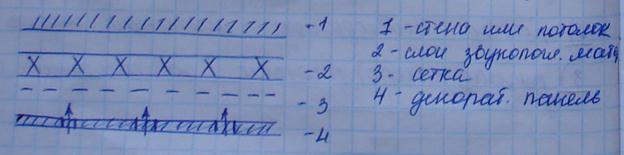 -1
-2
-3
-4
1 - стена или потолок
2 - слои звукопогл. мат.
3 - сетка
4 - декорат. панель